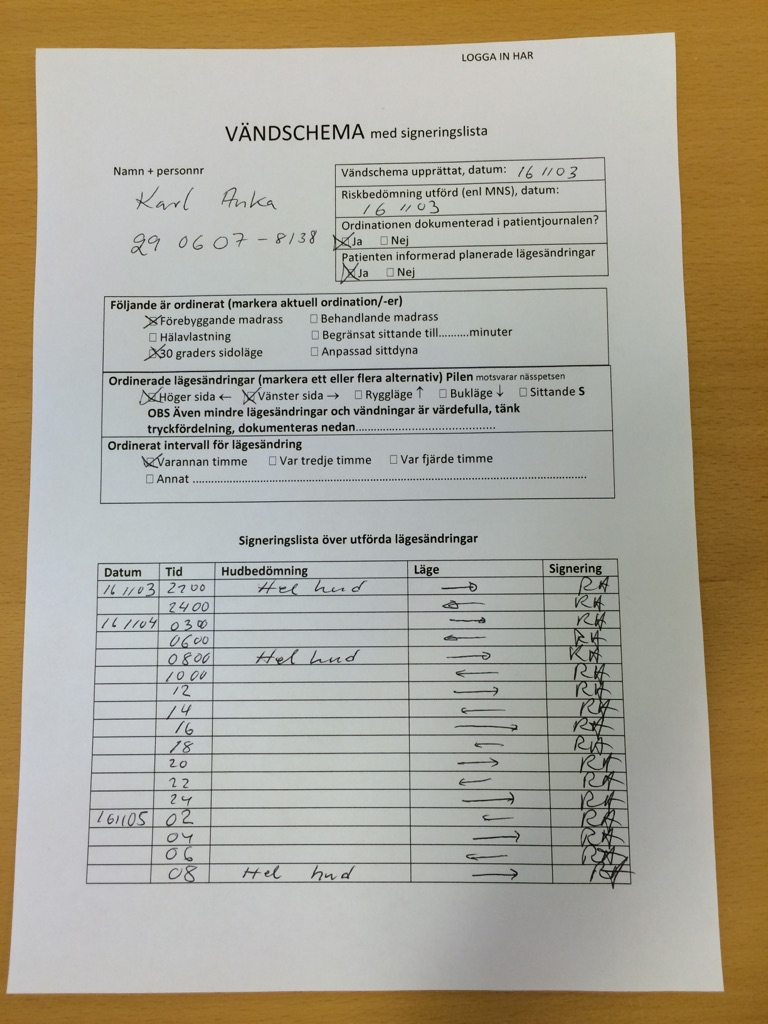 LOGGA IN HAR
VÄNDSCHEMA med signeringslista
Namn + personnr
Karl Anka
290607-8138
Vändschema upprättat, datum: 161103
Riskbedömning utförd (enl MNS), datum:
161103
Ordinationen dokumenterad i patientjournalen?
☒Ja ☐ Nej
Patienten informerad planerade lägesändringar
☒Ja ☐ Nej
Följande är ordinerat (markera aktuell ordination/-er)
☒Förebyggande madrass ☐ Behandlande madrass
☐ Hälavlastning ☐ Begränsat sittande till..........minuter
☒30 graders sidoläge ☐ Anpassad sittdyna
Ordinerade lägesändringar (markera ett eller flera alternativ) Pilen motsvarar nässpetsen
☒Höger sida ← ☒Vänster sida → ☐ Ryggläge ↑ ☐ Bukläge ↓ ☐ Sittande S
OBS Även mindre lägesändringar och vändningar är värdefulla, tänk
tryckfördelning, dokumenteras nedan..........................................
Ordinerat intervall för lägesändring
☒Varannan timme ☐ Var tredje timme ☐ Var fjärde timme
☐ Annat ..........................................................................................
Signeringslista över utförda lägesändringar
Datum Tid Hudbedömning Läge Signering
161103 2200 Hel hud → RA
2400 ← RA
161104 0300 → RA
0600 ← RA
0800 Hel hud → RA
1000 ← RA
12 → RA
14 ← RA
16 → RA
18 ← RA
20 → RA
22 ← RA
24 → RA
161105 02 ← RA
04 → RA
06 ← RA
08 Hel hud → RA